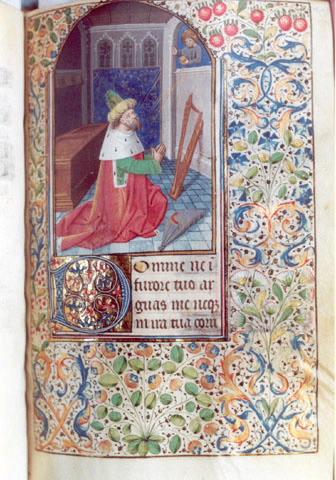 Domine ne i
furore tuo ar
guas me neqꝫ
in ira tua corri